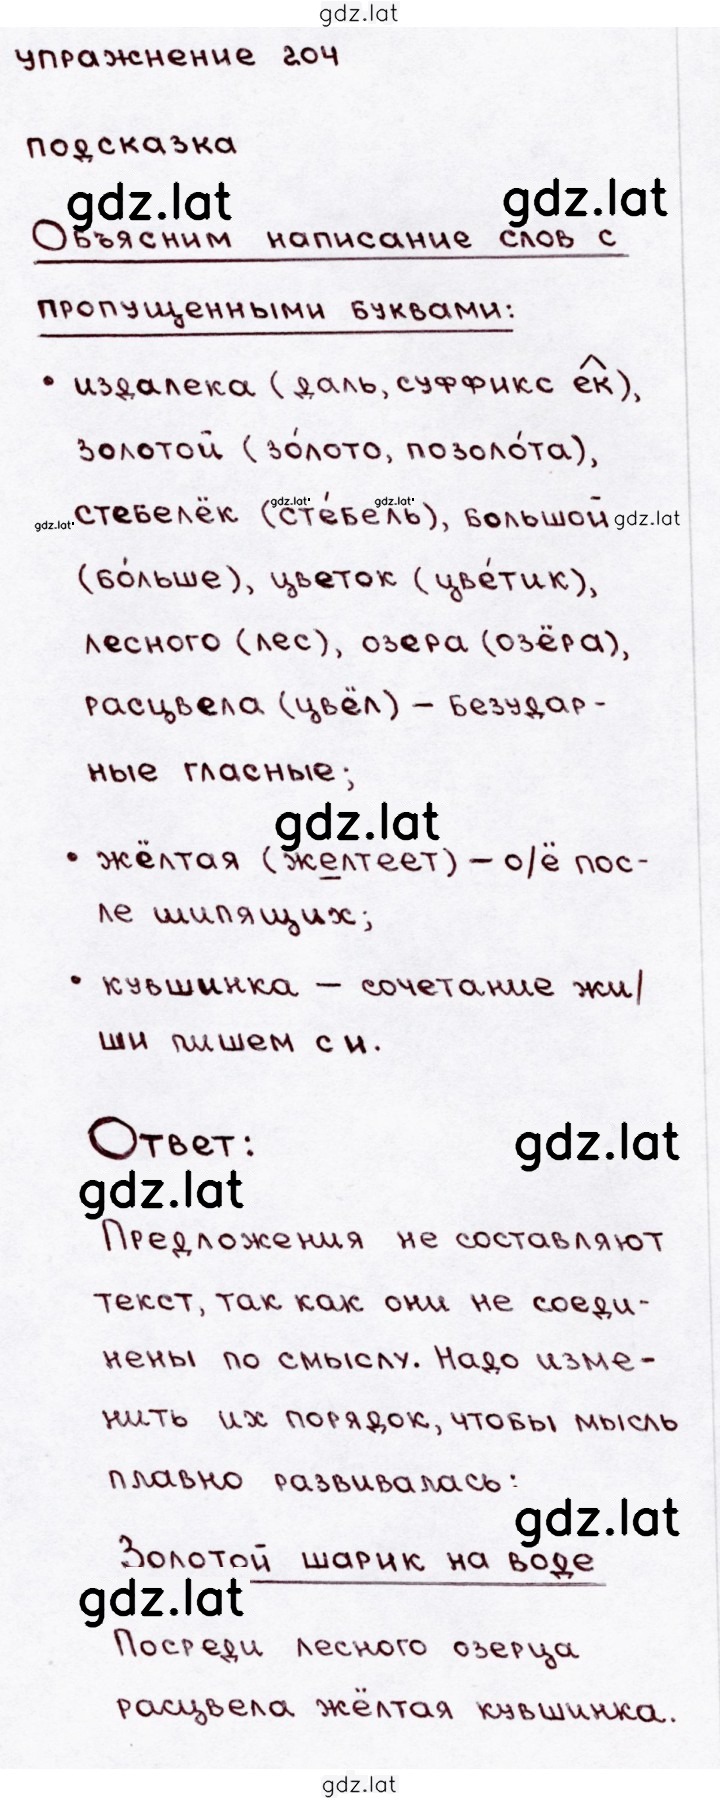 gdz.lat
упражнение 204
подсказка
gdz.lat gdz.lat
Объясним написание слов с
пропущенными буквами:
• издалека (даль, суффикс ек),
золотой (зо́лото, позоло́та),
gdz.lat gdz.lat
gdz.lat стебелёк (сте́бель), большой gdz.lat
(бо́льше), цветок (цве́тик),
лесного (лес), озера (озёра),
расцвела (цвёл) – безудар-
ные гласные;
gdz.lat
• жёлтая (желтеет) – о/ё пос-
ле шипящих;
• кувшинка – сочетание жи/
ши пишем с и.
Ответ: gdz.lat
gdz.lat
Предложения не составляют
текст, так как они не соеди-
нены по смыслу. Надо изме-
нить их порядок, чтобы мысль
плавно развивалась:
gdz.lat
Золотой шарик на воде
gdz.lat
Посреди лесного озерца
расцвела жёлтая кувшинка.
gdz.lat